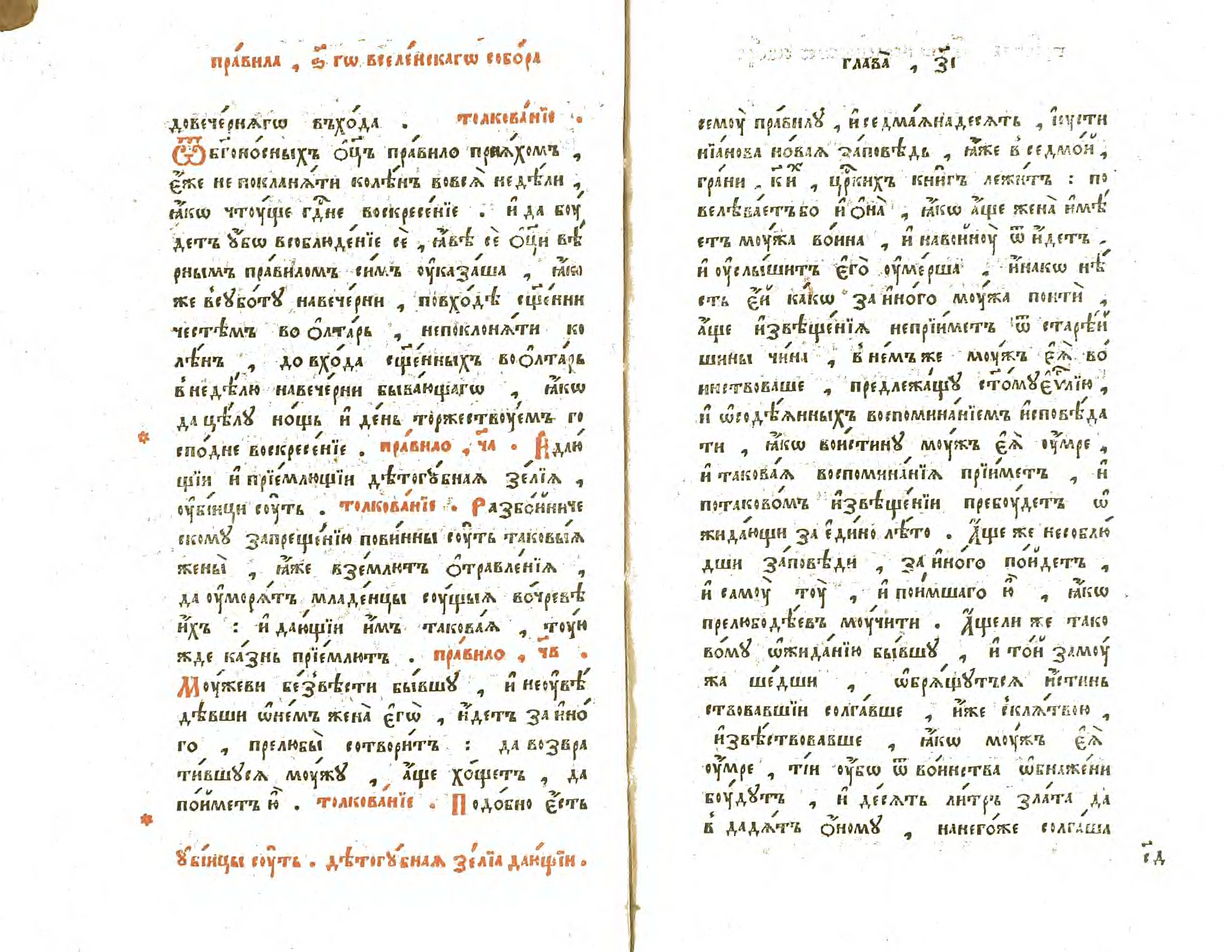 пра́вила , ѕ҃ гѡ вселе́нскагѡ собо́ра
довече́рнѧгѡ въхо́да . толкова́нїе .
Ѿ бг҃оно́сныхъ ѻ҆ц҃ъ пра́вило прїѧ́хомъ ,
є҆́же не покланѧ́ти колѣ́нъ вовсѧ̀ недѣ́ли ,
ꙗ҆́кѡ чтоу́ще гд҃не воскресе́нїе . и҆ да боу́
детъ ᲂу҆́бѡ всоблюде́нїе сѐ , ꙗ҆́вѣ сѐ ѻ҆ц҃и вѣ́
рнымъ пра́виломъ си́мъ ᲂу҆каза́ша , ꙗ҆́ко
же всꙋбо́тꙋ навече́рни , повхо́дѣ сщ҃е́нни
честѣ́мъ во ѻ҆лта́рь , непоклонѧ́ти ко
лѣ́нъ , до вхо́да сщ҃е́нныхъ воѻ҆лта́рь
в недѣ́лю навече́рни быва́ющагѡ , ꙗ҆́кѡ
да цѣ́лꙋ но́щь и҆ де́нь торжествоу́емъ го
спо́дне воскресе́нїе . пра́вило , ч҃а . Е҆ даю́
щїи и҆ прїе́млющїи дѣтогꙋ́бнаѧ зе́лїѧ ,
ᲂу҆бі́йцы соу́ть . толкова́нїе . Разбо́йниче
скомꙋ запреще́нїю пови́нны соу́ть таковы́ѧ
жены̀ , ꙗ҆́же взе́млютъ ѻ҆травле́нїѧ ,
да ᲂу҆морѧ́тъ младе́нцы соу́щыѧ во́чревѣ
и҆́хъ : и҆ даю́щїи и҆̀мъ такова́ѧ , тоую
жде ка́знь прїе́млютъ . пра́вило , ч҃в .
Моу́жеви безвѣ́сти бы́вшꙋ , и҆ неоувѣ́
дѣвши ѡ҆не́мъ жена̀ є҆гѡ̀ , и҆́детъ за и҆но́
го , прелюбы̀ сотвори́тъ : да возвра
ти́вшꙋсѧ моу́жꙋ , а҆́ще хо́щетъ , да
по́йметъ ю҆̀ . толкова́нїе . Подо́бно є҆́сть
ᲂу҆бі́йцы соу́ть . дѣтогꙋ́бнаѧ зе́лїа даю́щїи .
глава̀ , з҃і
семоу̀ пра́вилꙋ , и҆ седмаѧна́десѧть , і҆ꙋсти
нїа́нова но́ваѧ за́повѣдь , ꙗ҆́же в седмо́й ,
гра́ни , к҃и , цр҃кихъ кни́гъ лежи́тъ : по
велѣва́етъ бо и҆ ѻ҆на̀ , ꙗ҆́кѡ а҆́ще жена̀ и҆мѣ́
етъ моу́жа во́ина , и҆ навойноу̀ ѿ и҆́детъ .
и҆ ᲂу҆слы́шитъ є҆го̀ ᲂу҆ме́рша , и҆на́кѡ нѣ́
сть є҆́й ка́кѡ за и҆ного моу́жа поитѝ ,
а҆́ще и҆звѣще́нїѧ непрїи́метъ ѿ старѣ́й
шины чи́на , в не́мъ же моу́жъ є҆ѧ̀ во́
инствоваше , предлежа́щꙋ ст҃о́мꙋ є҆ѵ҃лїю ,
и҆ ѡ҆содѣ́ѧнныхъ воспомина́нїемъ и҆сповѣ́да
ти , ꙗ҆́кѡ вои́стинꙋ моу́жъ є҆ѧ̀ ᲂу҆́мре ,
и҆ такова́ѧ воспомина́нїѧ прїи́метъ , и҆
потаково́мъ и҆звѣще́нїи пребоу́детъ ѡ҆
жида́ющи за є҆ди́но лѣ́то . А҆́ще же несоблю́
дши за́повѣди , за и҆́ного по́йдетъ ,
и҆ самоу̀ тоу̀ , и҆ пои́мшаго ю҆̀ , ꙗ҆́кѡ
прелюбодѣ́евъ моу́чити . А҆́щели же тако
во́мꙋ ѡ҆жида́нїю бы́вшꙋ , и҆ то́й замоу́
жа ше́дши , ѡ҆брѧ́щꙋтьсѧ и҆́стинь
ствовавшїи солга́вше , и҆́же склѧ́твою ,
и҆звѣ́ствовавше , ꙗ҆́кѡ моу́жъ є҆ѧ̀
ᲂу҆́мре , ті́и ᲂу҆́бѡ ѿ во́инства ѡ҆бнаже́ни
боу́дꙋтъ , и҆ де́сѧть ли́тръ зла́та да
в дадѧ́тъ ѻ҆́номꙋ , нанего́же солга́ша
с҃д